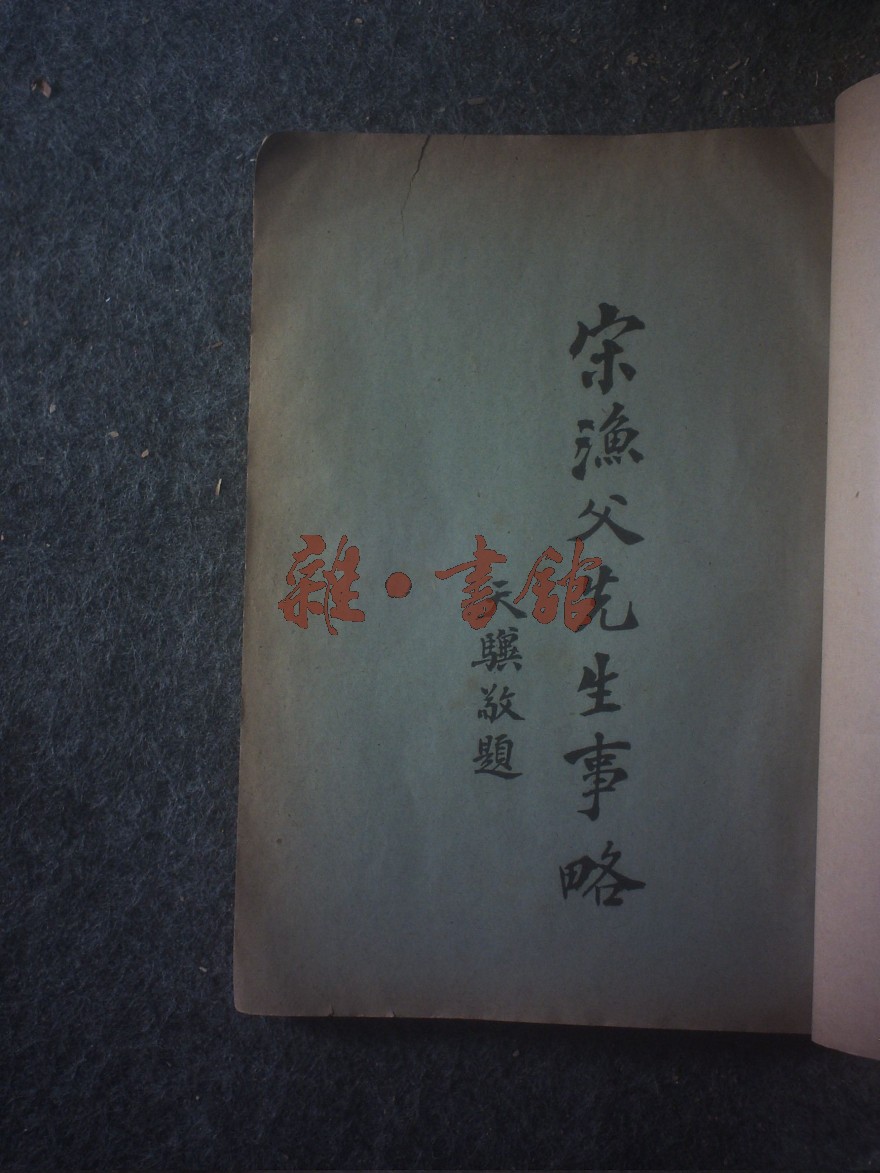 宋漁父先生事略
天驥敬題
雜·書館